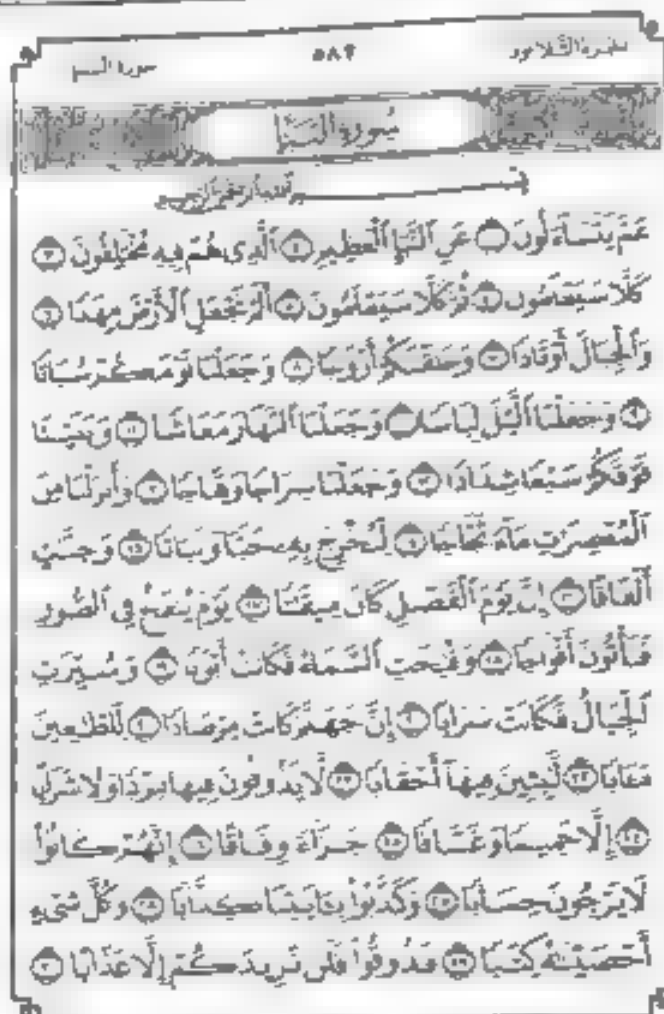 الجزء الثلاثون ٥٨٢ سورة النبإ
سُورَةُ النَّبَإِ
بِسْمِ اللَّهِ الرَّحْمَٰنِ الرَّحِيمِ
عَمَّ يَتَسَآءَلُونَ ١ عَنِ ٱلنَّبَإِ ٱلْعَظِيمِ ٢ ٱلَّذِى هُمْ فِيهِ مُخْتَلِفُونَ ٣
كَلَّا سَيَعْلَمُونَ ٤ ثُمَّ كَلَّا سَيَعْلَمُونَ ٥ أَلَمْ نَجْعَلِ ٱلْأَرْضَ مِهَٰدًا ٦
وَٱلْجِبَالَ أَوْتَادًا ٧ وَخَلَقْنَٰكُمْ أَزْوَٰجًا ٨ وَجَعَلْنَا نَوْمَكُمْ سُبَاتًا
٩ وَجَعَلْنَا ٱلَّيْلَ لِبَاسًا ١٠ وَجَعَلْنَا ٱلنَّهَارَ مَعَاشًا ١١ وَبَنَيْنَا
فَوْقَكُمْ سَبْعًا شِدَادًا ١٢ وَجَعَلْنَا سِرَاجًا وَهَّاجًا ١٣ وَأَنزَلْنَا مِنَ
ٱلْمُعْصِرَٰتِ مَآءً ثَجَّاجًا ١٤ لِّنُخْرِجَ بِهِۦ حَبًّا وَنَبَاتًا ١٥ وَجَنَّٰتٍ
أَلْفَافًا ١٦ إِنَّ يَوْمَ ٱلْفَصْلِ كَانَ مِيقَٰتًا ١٧ يَوْمَ يُنفَخُ فِى ٱلصُّورِ
فَتَأْتُونَ أَفْوَاجًا ١٨ وَفُتِحَتِ ٱلسَّمَآءُ فَكَانَتْ أَبْوَٰبًا ١٩ وَسُيِّرَتِ
ٱلْجِبَالُ فَكَانَتْ سَرَابًا ٢٠ إِنَّ جَهَنَّمَ كَانَتْ مِرْصَادًا ٢١ لِّلطَّٰغِينَ
مَـَٔابًا ٢٢ لَّٰبِثِينَ فِيهَآ أَحْقَابًا ٢٣ لَّا يَذُوقُونَ فِيهَا بَرْدًا وَلَا شَرَابًا
٢٤ إِلَّا حَمِيمًا وَغَسَّاقًا ٢٥ جَزَآءً وِفَاقًا ٢٦ إِنَّهُمْ كَانُوا۟
لَا يَرْجُونَ حِسَابًا ٢٧ وَكَذَّبُوا۟ بِـَٔايَٰتِنَا كِذَّابًا ٢٨ وَكُلَّ شَىْءٍ
أَحْصَيْنَٰهُ كِتَٰبًا ٢٩ فَذُوقُوا۟ فَلَن نَّزِيدَكُمْ إِلَّا عَذَابًا ٣٠